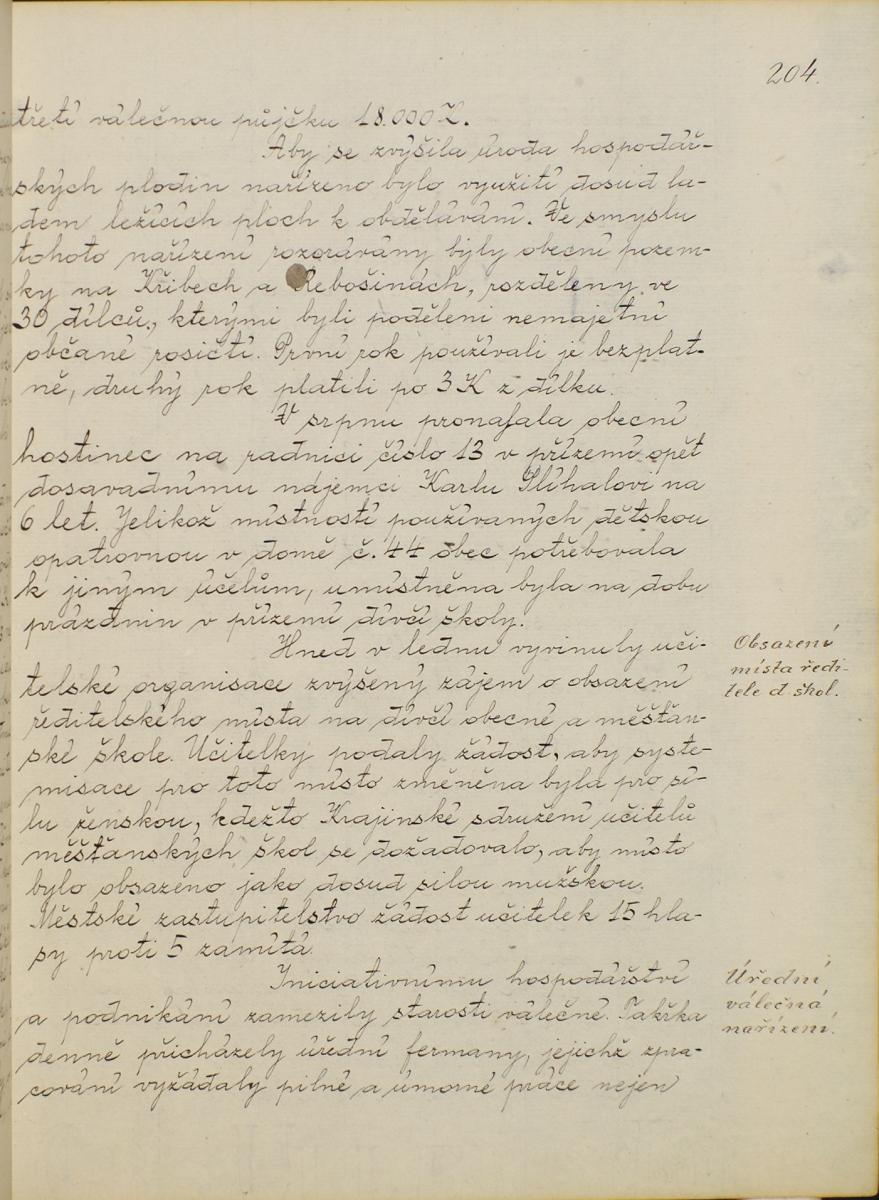 204.
třetí válečnou půjčku 18.000 K.
Aby se zvýšila úroda hospodář-
ských plodin nařízeno bylo využití dosud la-
dem ležících ploch k obdělávání. Ve smyslu
tohoto nařízení rozorávány byly obecní pozem-
ky na Křibech a Řebošinách, rozděleny ve
30 dílců, kterými byli poděleni nemajetní
občané rosičtí. První rok používali je bezplat-
ně, druhý rok platili po 3 K z dílku.
V srpnu pronajala obecní
hostinec na radnici číslo 13 v přízemí opět
dosavadnímu nájemci Karlu Slíhalovi na
6 let. Jelikož místností používaných dětskou
opatrovnou v domě č. 44 obec potřebovala
k jiným účelům, umístněna byla na dobu
prázdnin v přízemí dívčí školy.
Hned v lednu vyvinuly uči-
telské organisace zvýšený zájem o obsazení
ředitelského místa na dívčí obecné a měšťan-
ské škole. Učitelky podaly žádost, aby syste-
misace pro toto místo změněna byla pro sí-
lu ženskou, kdežto Krajinské sdružení učitelů
měšťanských škol se dožadovalo, aby místo
bylo obsazeno jako dosud silou mužskou.
Městské zastupitelstvo žádost učitelek 15 hla-
sy proti 5 zamítá.
Iniciativnímu hospodářství
a podnikání zamezily starosti válečné. Takřka
denně přicházely úřední fermany, jejichž zpra-
cování vyžádaly pilné a úmorné práce nejen
Obsazení
místa ředi-
tele d. škol.
Úřední
válečná
nařízení.